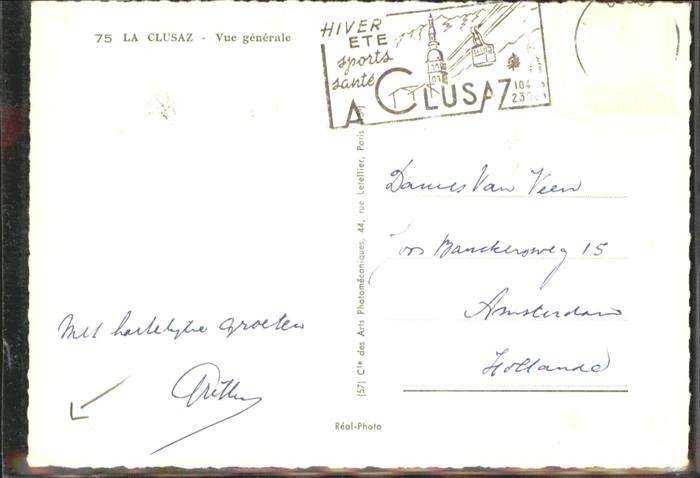 75 LA CLUSAZ - Vue générale
HIVER
ETE
sports
santé
LA CLUSAZ
Dames Van Veen
Joos Banckersweg 15
Amsterdam
Hollande
Met hartelijke groeten
(57) Cie des Arts Photomécaniques, 44, rue Letellier, Paris
Réal-Photo